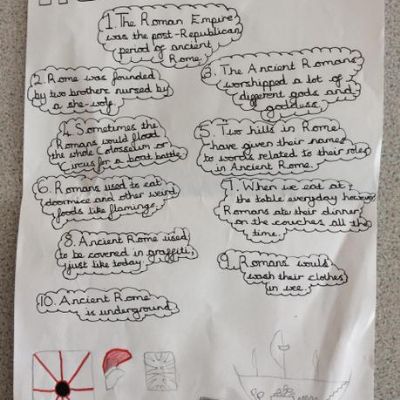 1. The Roman Empire
was the post-Republican
period of ancient
Rome.
2. Rome was founded
by two brothers nursed by
a she-wolf.
3. The Ancient Romans
worshipped a lot of
different gods and
goddess.
4. Sometimes the
Romans would flood
the whole Colosseum or
circus for a boat battle.
5. Two hills in Rome
have given their names
to words related to their roles
in Ancient Rome.
6. Romans used to eat
doormice and other weird
foods like flamingo.
7. When we eat at
the table everyday however
Romans ate their dinner
on the couches all the
time.
8. Ancient Rome used
to be covered in graffiti,
just like today.
9. Romans would
wash their clothes
in wee.
10. Ancient Rome
is underground.